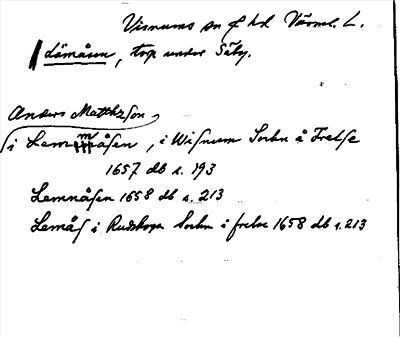 Visnums sn f hd Värml. L.
lämåsen, torp under Säby.
Anders Matthzson
i Lemmåsen, i Wisnum Sochn å Frelse
1657 db s. 193
Lemnåsen 1658 db s. 213
Lemås i Rudskoga Sochn i frelse 1658 db s. 213